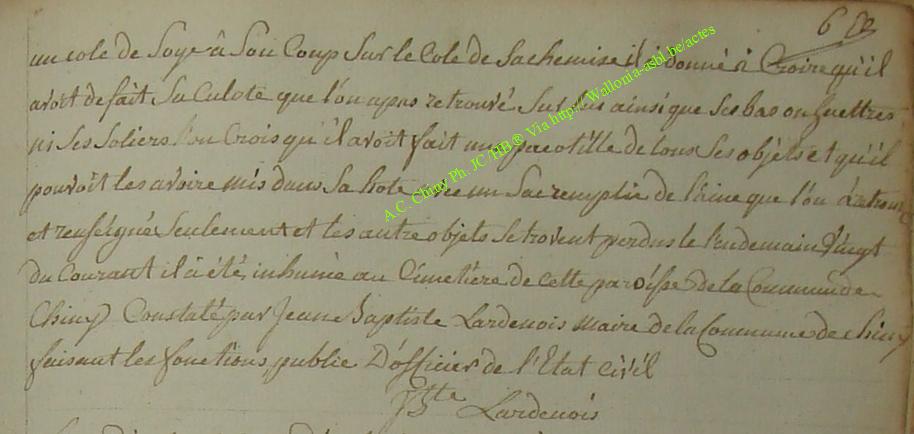 6
un cole de Soye à Son Coup Sur le Cole de Sa chemise il à donné à Croire qu'il
avoit defait Sa Culote que l'on a pas retrouvé Sur lui ainsi que Ses bas ou guettres
ni Ses Soliers l'on Crois qu'il avoit fait une pacotille de tous Ses objets et qu'il
pouvoit les avoire mis dans Sa hote avec un Sac remplie de laine que l'on à retrouvé
et renseigné Seulement et les autre objets Se trovent perdus le lendemain Vingt
du Courant il à été inhumé au Cimetiere de cette paroisse de la Commune de
Chiny Constaté par Jean Baptiste Lardenois maire de la Commune de Chiny
faisant les fonctions publie D'officier de l'Etat Civil
JBtte Lardenois
A.C. Chiny Ph. JC /HB® Via http://Wallonia-asbl.be/actes